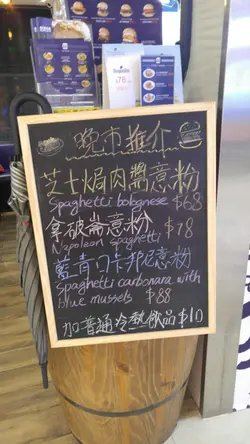 晚市推介
芝士焗肉醬意粉
Spaghetti bolognese $68
拿破崙意粉 $78
Napolean spaghetti
藍青口卡邦尼意粉
Spaghetti carbonara with
blue mussels $88
加普通冷熱飲品$10